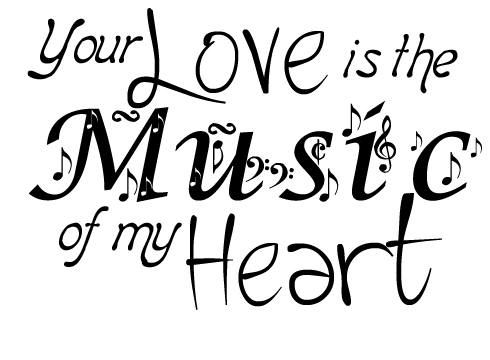 Your Love is the
Music
of my Heart